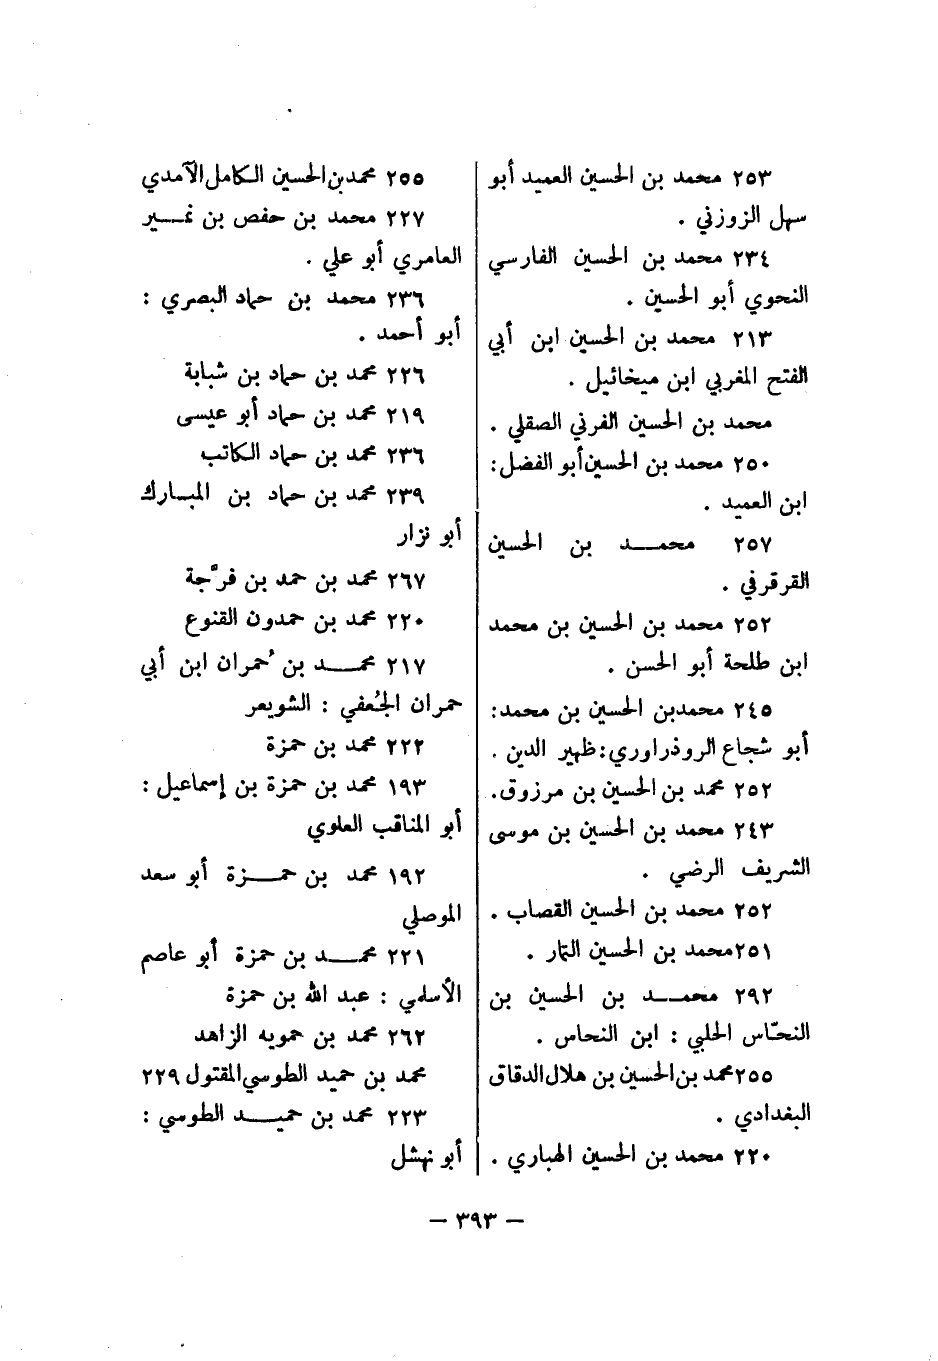 ٢٥٣ محمد بن الحسين العميد أبو
سهل الزوزني .
٢٣٤ محمد بن الحسين الفارسي
النحوي أبو الحسين .
٢١٣ محمد بن الحسين ابن أبي
الفتح المغربي ابن ميخائيل .
محمد بن الحسين الفرني الصقلي .
٢٥٠ محمد بن الحسين أبو الفضل:
ابن العميد .
٢٥٧ محمد بن الحسين
القرقرفي .
٢٥٢ محمد بن الحسين بن محمد
ابن طلحة أبو الحسن .
٢٤٥ محمد بن الحسين بن محمد:
أبو شجاع الروذراوري: ظهير الدين .
٢٥٢ محمد بن الحسين بن مرزوق.
٢٤٣ محمد بن الحسين بن موسى
الشريف الرضي .
٢٥٢ محمد بن الحسين القصاب .
٢٥١ محمد بن الحسين التمار .
٢٩٢ محمد بن الحسين بن
النحّاس الحلبي : ابن النحاس .
٢٥٥ محمد بن الحسين بن هلال الدقاق
البغدادي .
٢٢٠ محمد بن الحسين الهباري .
٢٥٥ محمد بن الحسين الكامل الآمدي
٢٢٧ محمد بن حفص بن نمير
العامري أبو علي .
٢٣٦ محمد بن حماد البصري :
أبو أحمد .
٢٢٦ محمد بن حماد بن شبابة
٢١٩ محمد بن حماد أبو عيسى
٢٣٦ محمد بن حماد الكاتب
٢٣٩ محمد بن حماد بن المبارك
أبو نزار
٢٦٧ محمد بن حمد بن فرّجة
٢٢٠ محمد بن حمدون القنوع
٢١٧ محمد بن حُمران ابن أبي
حمران الجُعفي : الشويعر
٢٢٢ محمد بن حمزة
١٩٣ محمد بن حمزة بن إسماعيل :
أبو المناقب العلوي
١٩٢ محمد بن حمزة أبو سعد
الموصلي
٢٢١ محمد بن حمزة أبو عاصم
الأسلمي : عبد الله بن حمزة
٢٦٢ محمد بن حمويه الزاهد
محمد بن حميد الطوسي المقتول ٢٢٩
٢٢٣ محمد بن حميد الطوسي :
أبو نهشل
— ٣٩٣ —